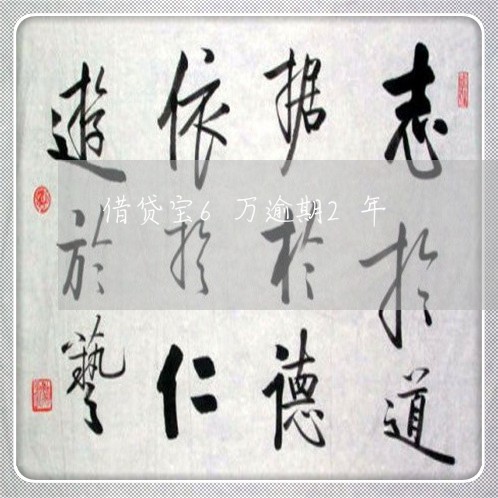 志扵道
据扵德
依扵仁
遊於藝
借贷宝6 万逾期2 年